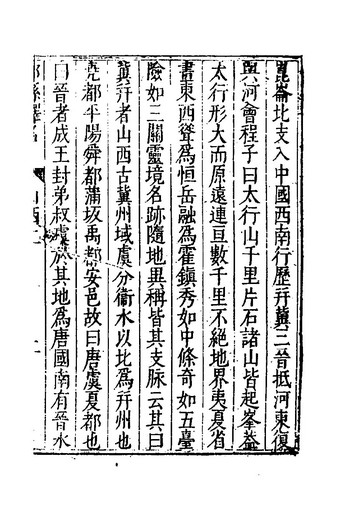 崑崙北支入中國西南行歷并冀三晉抵河東復
與河會程子曰太行山千里片石諸山皆起峯葢
太行形大而原遠連亘數千里不絕地界夷夏省
畫東西聳為恒岳融為霍鎮秀如中條奇如五臺
險如三關靈境名跡隨地異稱皆其支脉云其曰
冀并者山西古冀州域虞分衞水以北為并州也
堯都平陽舜都蒲坂禹都安邑故曰唐虞夏都也
曰晉者成王封弟叔虞於其地為唐國南有晉水
郡縣釋名